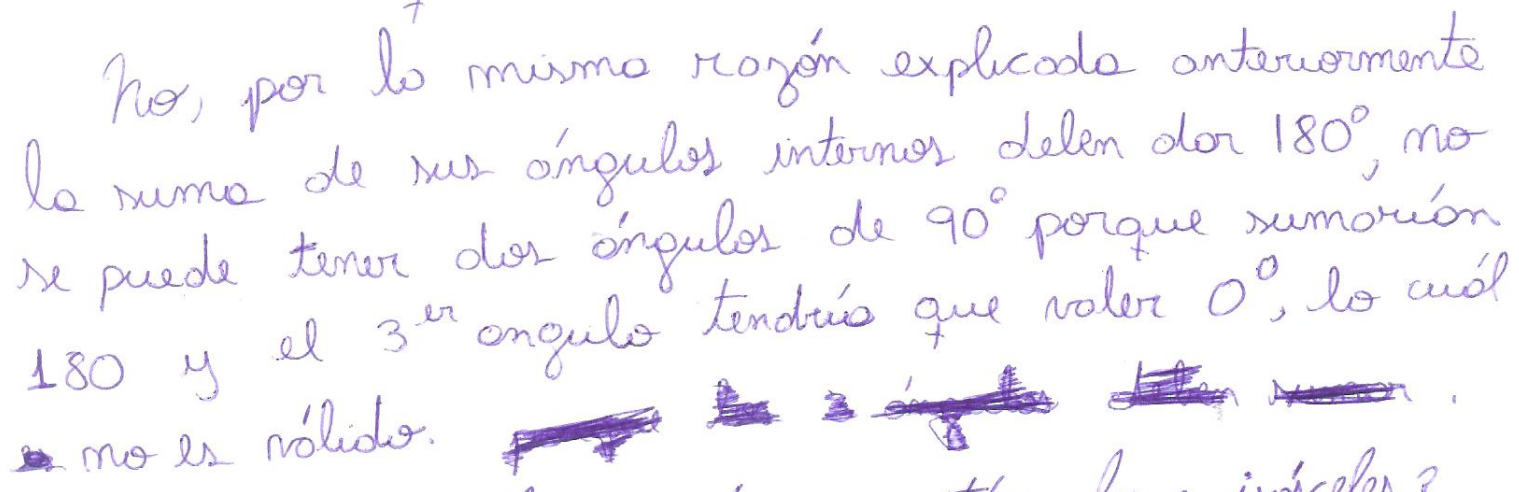 No, por la misma razón explicada anteriormente
la suma de sus ángulos internos deben dar 180º, no
se puede tener dos ángulos de 90º porque sumarían
180 y el 3er angulo tendría que valer 0º, lo cuál
no es válido.
isósceles?